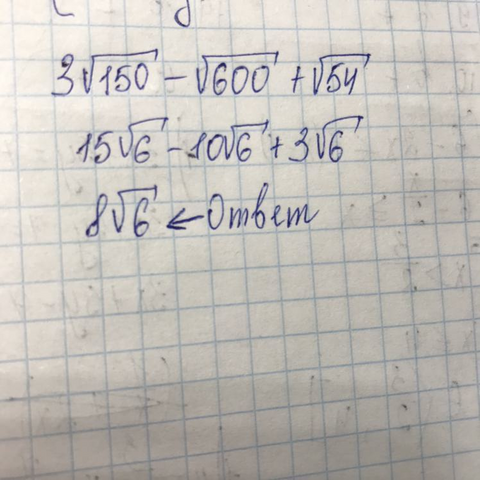 3√150 - √600 + √54
15√6 - 10√6 + 3√6
8√6 ← Ответ